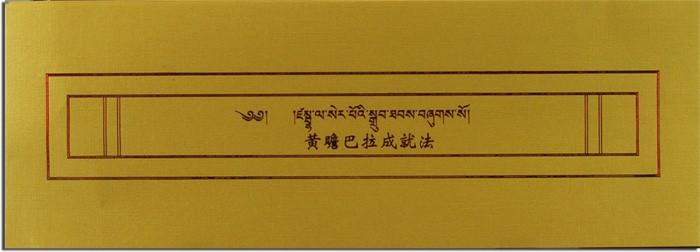 ༄༅། །ཛམྦྷ་ལ་སེར་པོའི་སྒྲུབ་ཐབས་བཞུགས་སོ།
黄瞻巴拉成就法